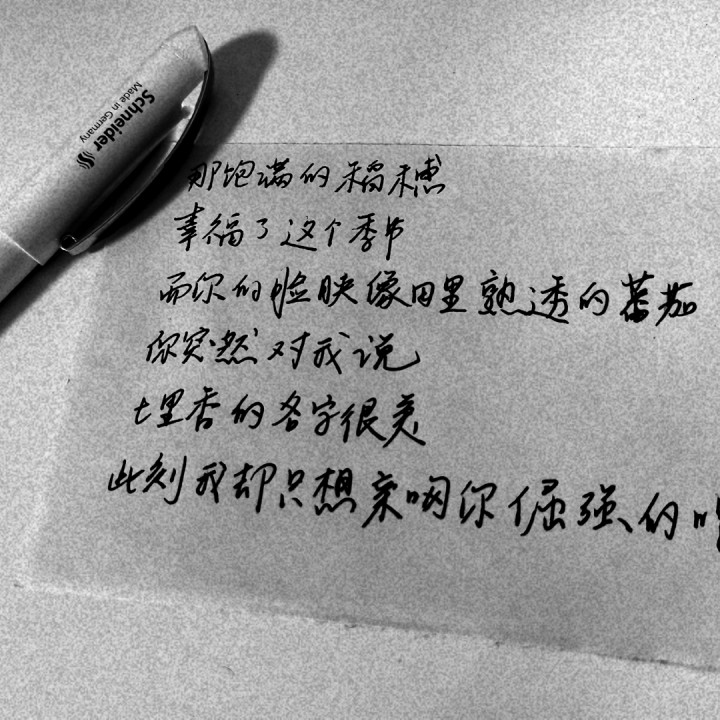 Schneider
Made in Germany
那饱满的稻穗
幸福了这个季节
而你的脸映像田里熟透的蕃茄
你突然对我说
七里香的名字很美
此刻我却只想亲吻你倔强的